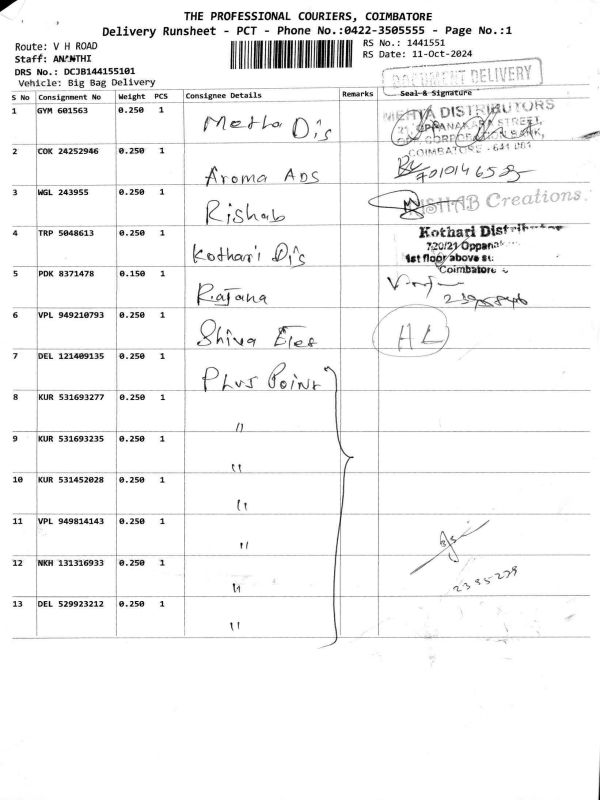 THE PROFESSIONAL COURIERS, COIMBATORE
Delivery Runsheet - PCT - Phone No.:0422-3505555 - Page No.:1
Route: V H ROAD
RS No.: 1441551
Staff: ANANTHI
RS Date: 11-Oct-2024
DRS No.: DCJB144155101
Vehicle: Big Bag Delivery
DOCUMENT DELIVERY
S No Consignment No Weight PCS Consignee Details Remarks Seal & Signature
1 GYM 601563 0.250 1 Metha Dis
MEHTA DISTRIBUTORS
21, OPPANAKARA STREET,
CORPORATION BANK,
COIMBATORE - 641 001
2 COK 24252946 0.250 1 Aroma ADS
3 WGL 243955 0.250 1 Rishab
RISHAB Creations
4 TRP 5048613 0.250 1 Kothari Dis
Kothari Distributor
720/21 Oppana
1st floor above
Coimbatore
5 PDK 8371478 0.150 1 Rajana
6 VPL 949210793 0.250 1 Shiva Elec
HL
7 DEL 121409135 0.250 1 Plus Point
8 KUR 531693277 0.250 1 "
9 KUR 531693235 0.250 1 "
10 KUR 531452028 0.250 1 "
11 VPL 949814143 0.250 1 "
12 NKH 131316933 0.250 1 "
2395229
13 DEL 529923212 0.250 1 "